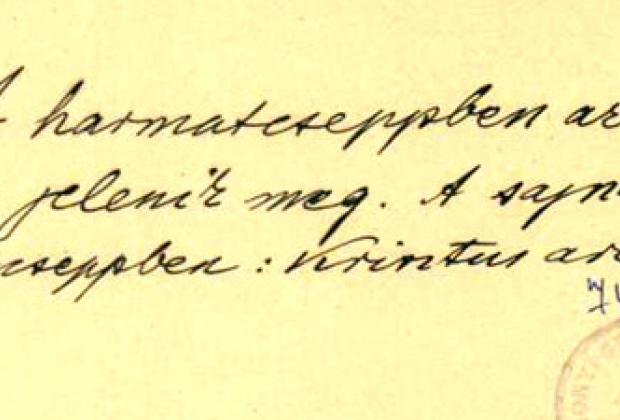 A harmatcseppben ar
jelenik meg. A sajn
cseppben: Krisztus arc